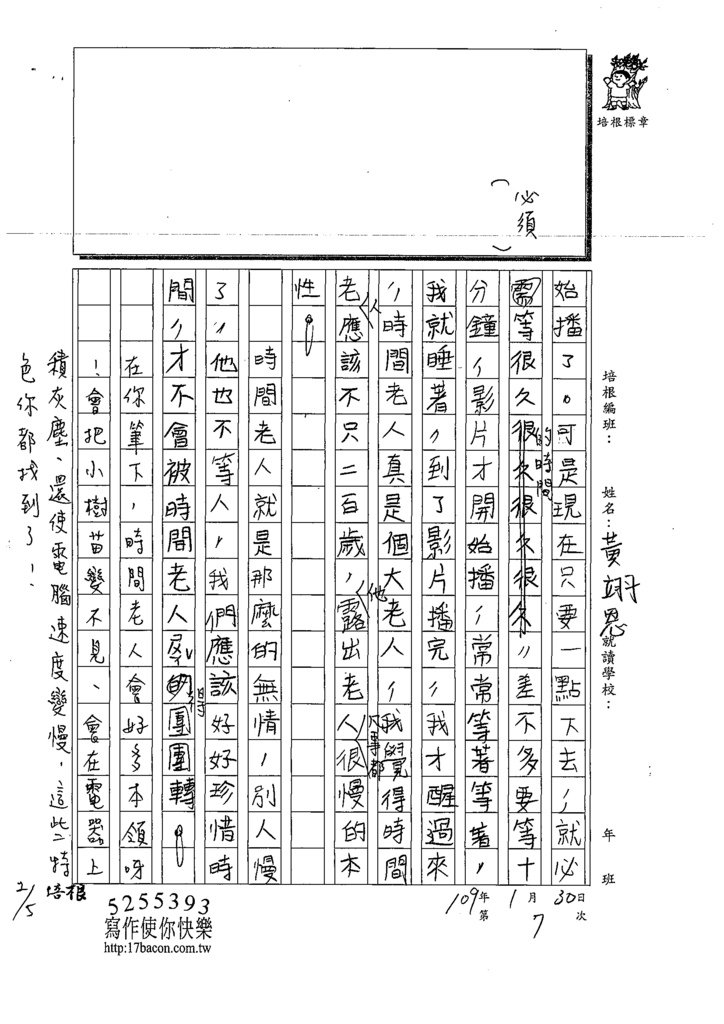 培根標章
(必須)
培根編班： 姓名：黃翊恩 就讀學校： 年 班
109年 1月 30日
第 7 次
始播了。可是現在只要一點下去，就必
需等很久很久很久很久，差不多要等十
的時間
分鐘，影片才開始播，常常等著等著，
我就睡著，到了影片播完，我才醒過來
，時間老人真是個大老人，我覺得時間
老應該不只二百歲，露出老人很慢的本
人
他
凡事都
性。
時間老人就是那麼的無情，別人慢
了，他也不等人，我們應該好好珍惜時
間，才不會被時間老人 的團團轉。
得
在你筆下，時間老人會好多本領呀
！會把小樹苗變不見、會在電器上
積灰塵、還使電腦速度變慢，這些特
色你都找到了！
2/5
培根
5255393
寫作使你快樂
http:17bacon.com.tw